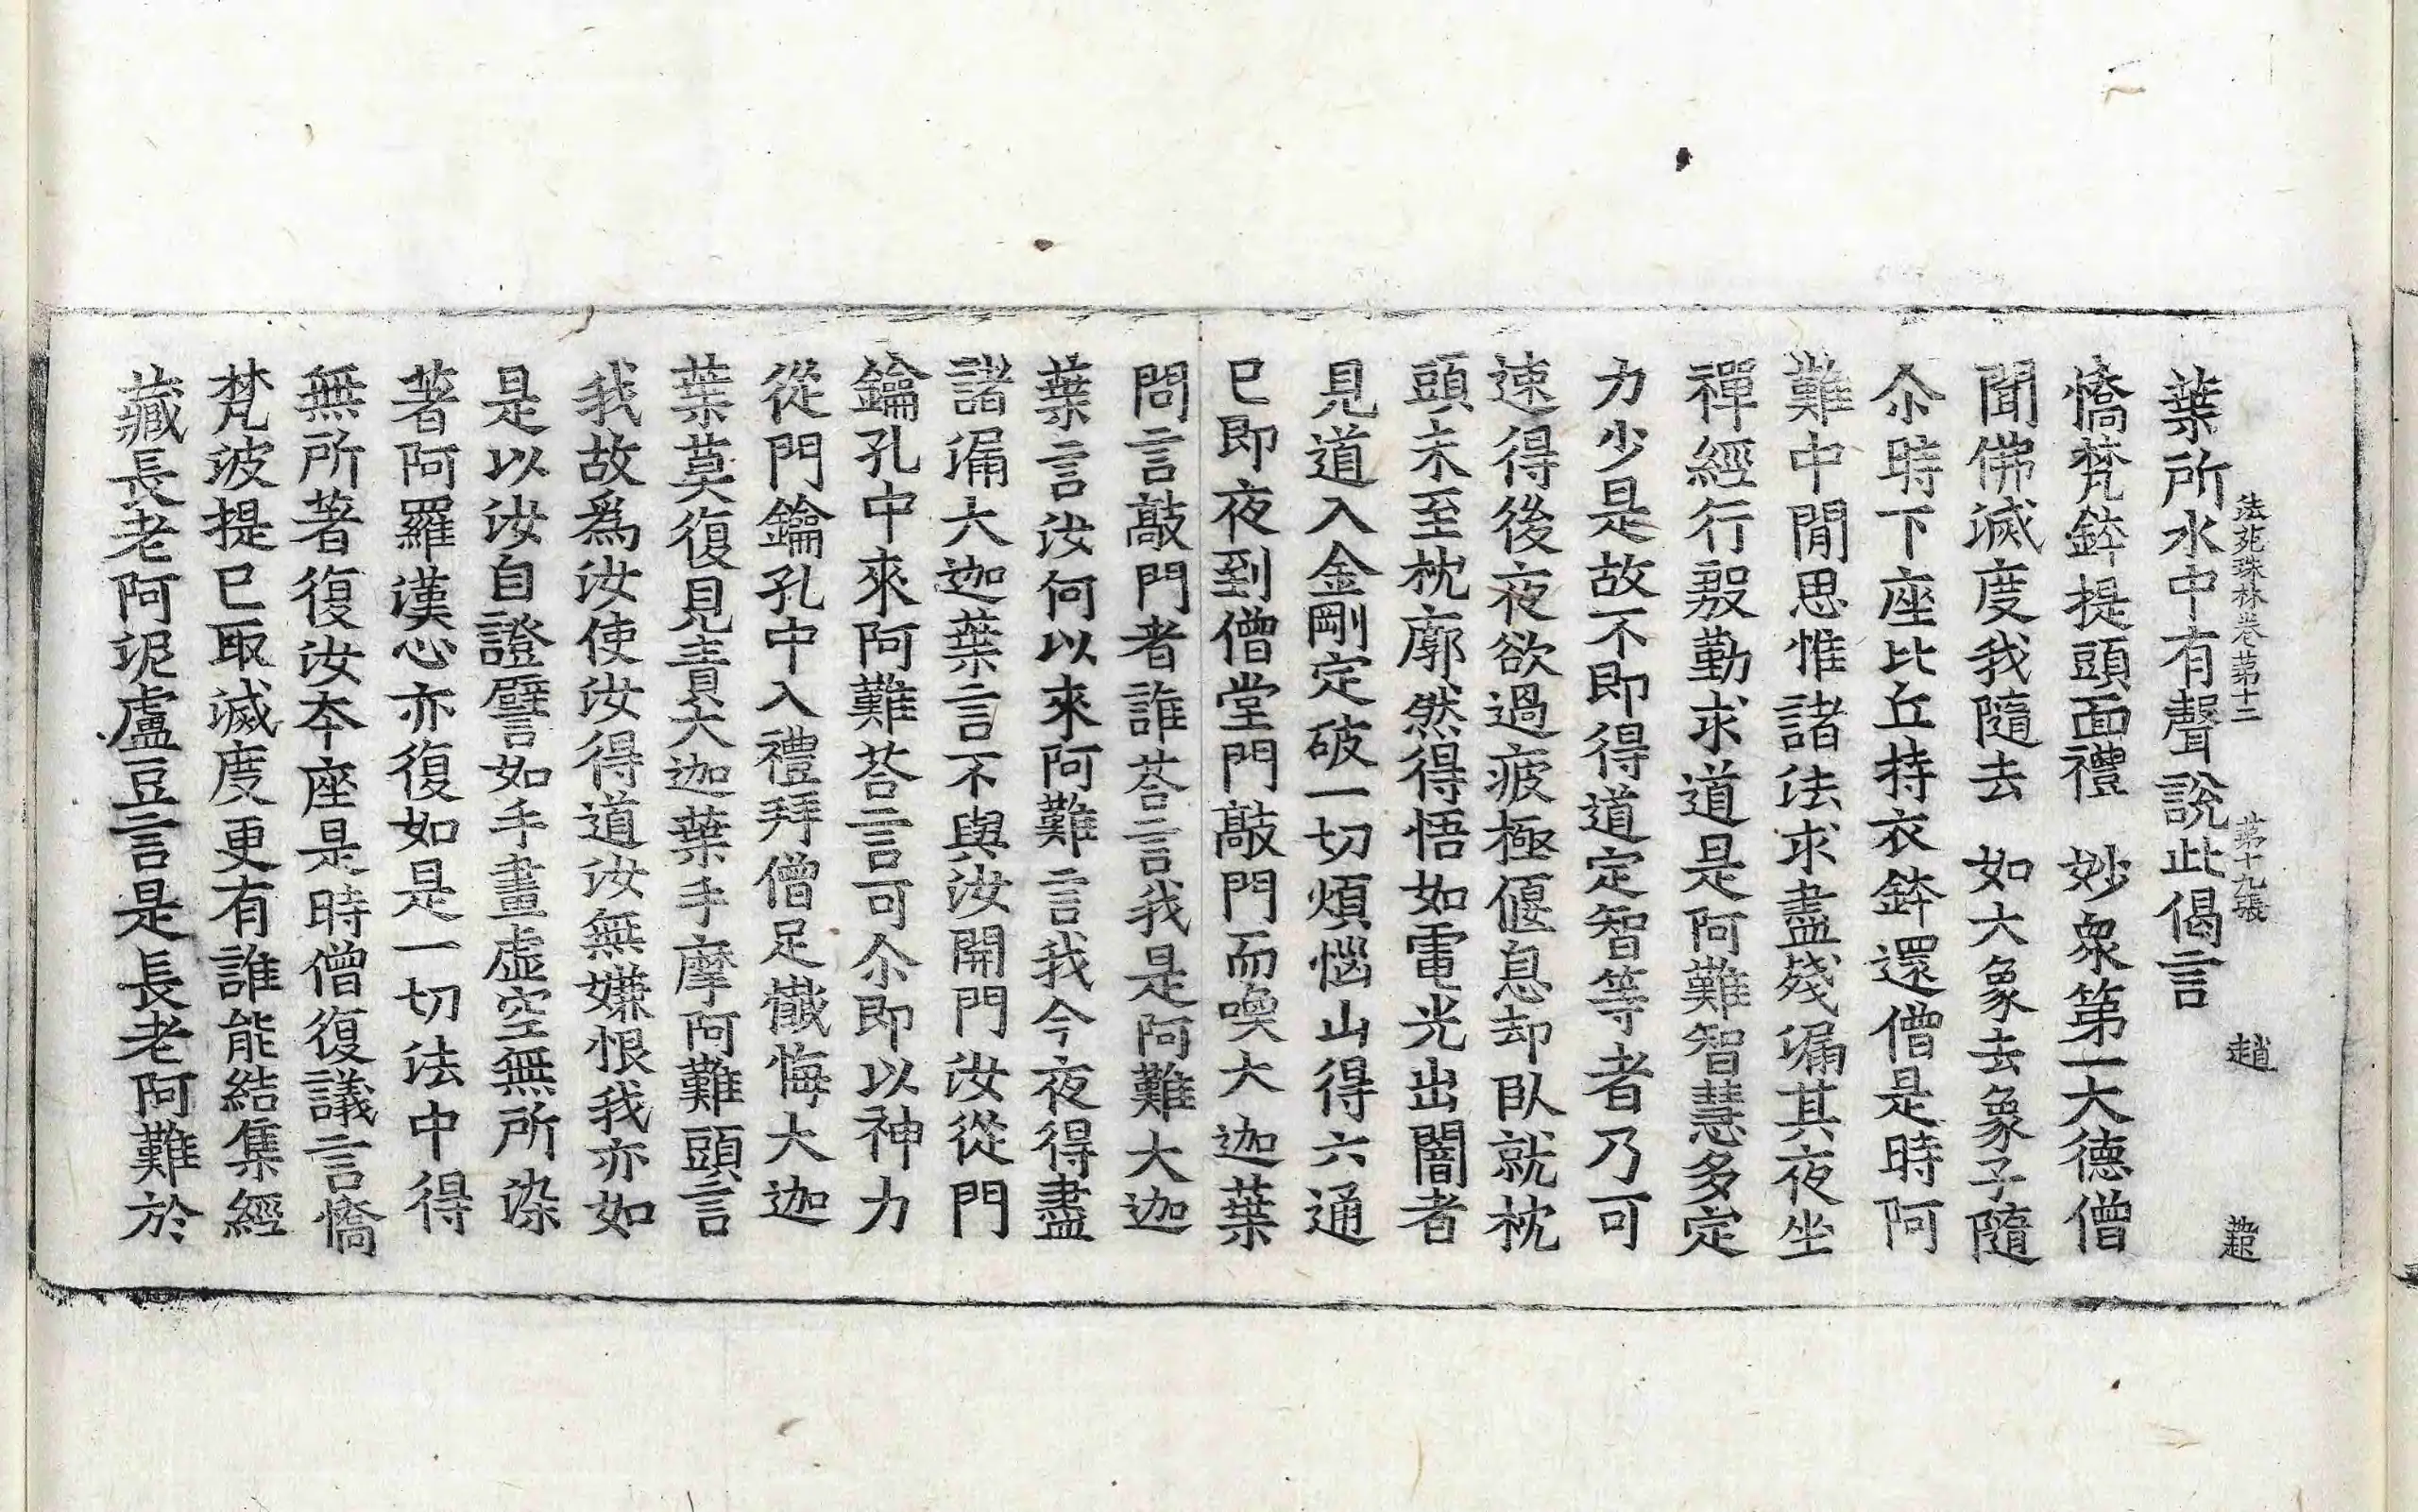 法苑珠林卷第十二 第十九張 趙 趙
葉所水中有聲說此偈言
憍梵鉢提頭面禮 妙衆第一大德僧
聞佛滅度我隨去 如大象去象子隨
尒時下座比丘持衣鉢還僧是時阿
難中間思惟諸法求盡殘漏其夜坐
禪經行慇勤求道是阿難智慧多定
力少是故不即得道定智等者乃可
速得後夜欲過疲極偃息却臥就枕
頭未至枕廓然得悟如電光出闇者
見道入金剛定破一切煩惱山得六通
已即夜到僧堂門敲門而喚大迦葉
問言敲門者誰荅言我是阿難大迦
葉言汝何以來阿難言我今夜得盡
諸漏大迦葉言不與汝開門汝從門
鑰孔中來阿難荅言可尒即以神力
從門鑰孔中入禮拜僧足懺悔大迦
葉莫復見責大迦葉手摩阿難頭言
我故爲汝使汝得道汝無嫌恨我亦如
是以汝自證譬如手畫虛空無所染
著阿羅漢心亦復如是一切法中得
無所著復汝本座是時僧復議言憍
梵波提已取滅度更有誰能結集經
藏長老阿泥盧豆言是長老阿難於